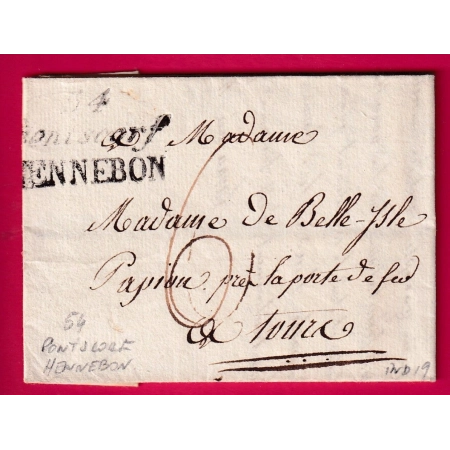 54
Pontscorff
HENNEBON
a Madame
Madame de Belle-Isle
Papion pres la porte de fer
6
a tours
54
PONTSCORF
HENNEBON
IND 19